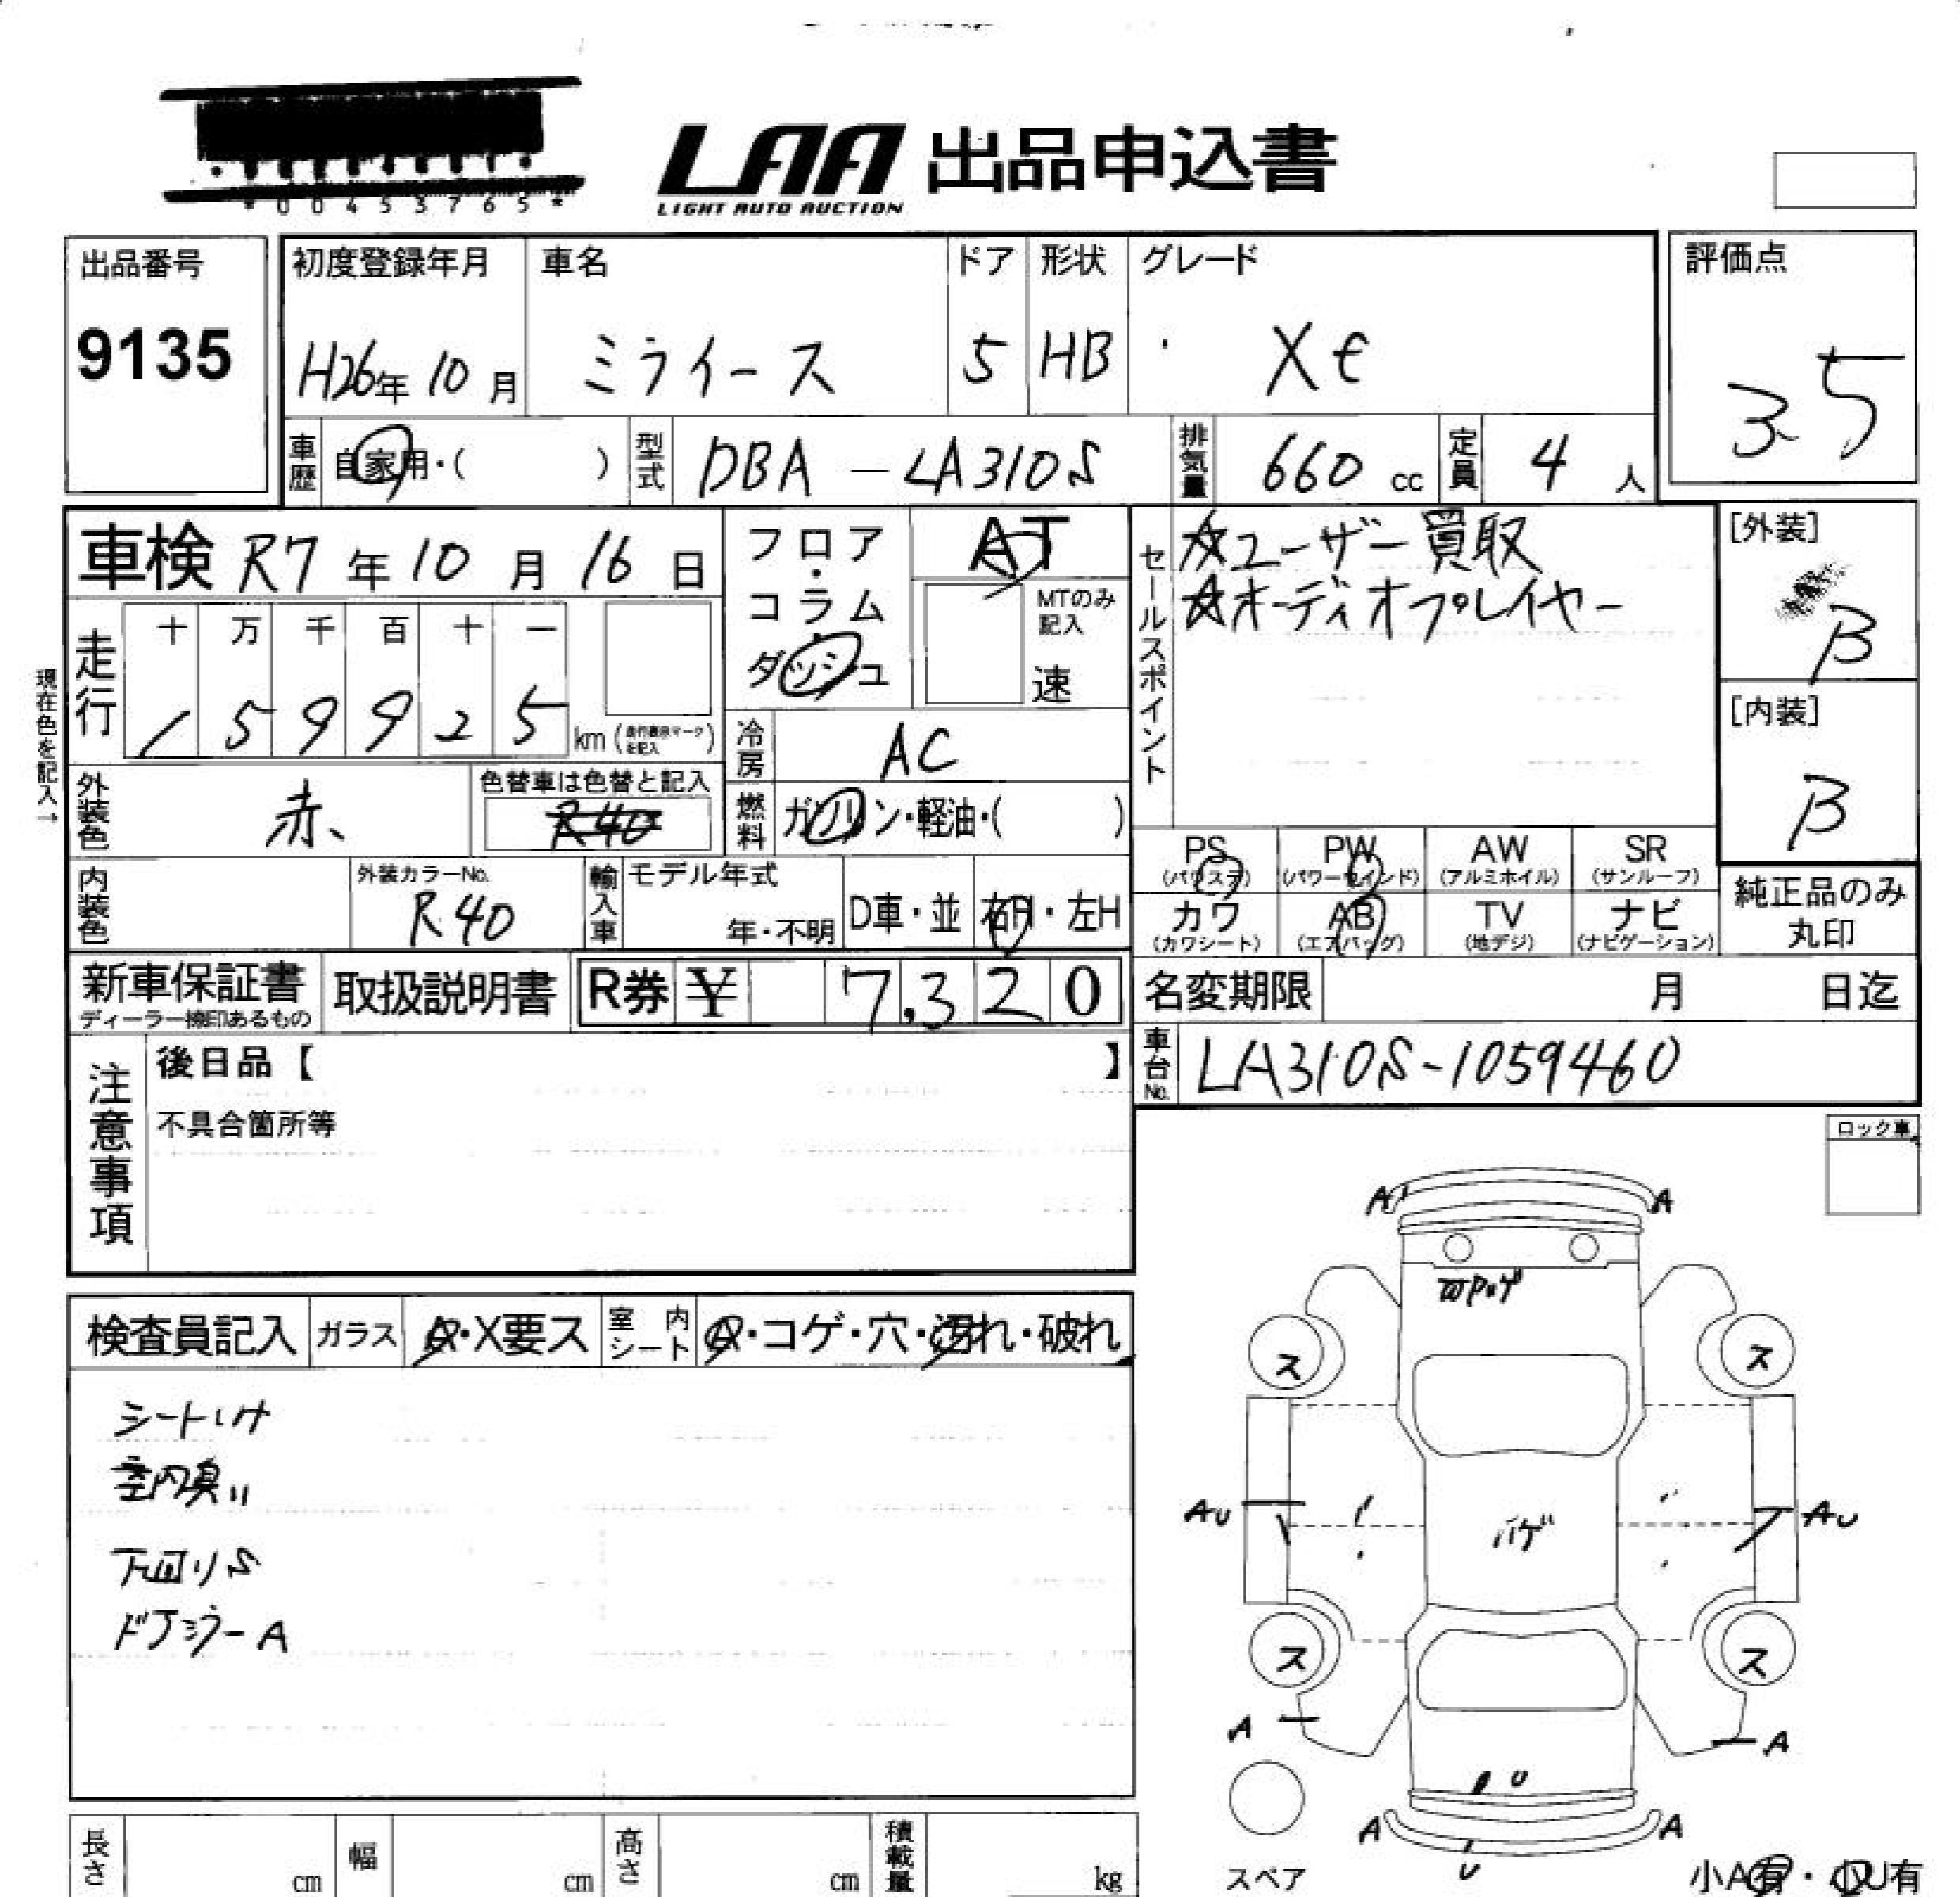 *00453765*
LAA 出品申込書
LIGHT AUTO AUCTION
出品番号
9135
初度登録年月
H26年10月
車名
ミライース
ドア
5
形状
HB
グレード
Xf
評価点
3.5
車歴
自家用・( )
型式
DBA-LA310S
排気量
660 cc
定員
4人
車検 R7年10月16日
フロア・コラム・ダッシュ
AT
MTのみ記入
速
セールスポイント
☆ユーザー買取
☆オーディオプレイヤー
[外装]
B
[内装]
B
現在色を記入→
走行
十 万 千 百 十 一
1 5 9 9 2 5 km
(走行表示マークを記入)
冷房
AC
外装色
赤
色替車は色替と記入
R40
燃料
ガソリン・軽油・( )
PS
(パワステ)
PW
(パワーウインド)
AW
(アルミホイル)
SR
(サンルーフ)
カワ
(カワシート)
AB
(エアバッグ)
TV
(地デジ)
ナビ
(ナビゲーション)
純正品のみ
丸印
内装色
外装カラーNo.
R40
輸入車
モデル年式
年・不明
D車・並
右H・左H
新車保証書
ディーラー捺印あるもの
取扱説明書
R券 ¥ 7,320
名変期限 月 日迄
車台No.
LA310S-1059460
注意事項
後日品【 】
不具合箇所等
ロック車
検査員記入
ガラス
A・X要ス
室内シート
A・コゲ・穴・汚れ・破れ
シート
室内臭い
下回りS
ドアミラーA
A A
ハゲ
ス ス
AU AU
ハゲ
ス ス
A A
U
A A
U
スペア
小A有・小U有
長さ cm
幅 cm
高さ cm
積載量 kg